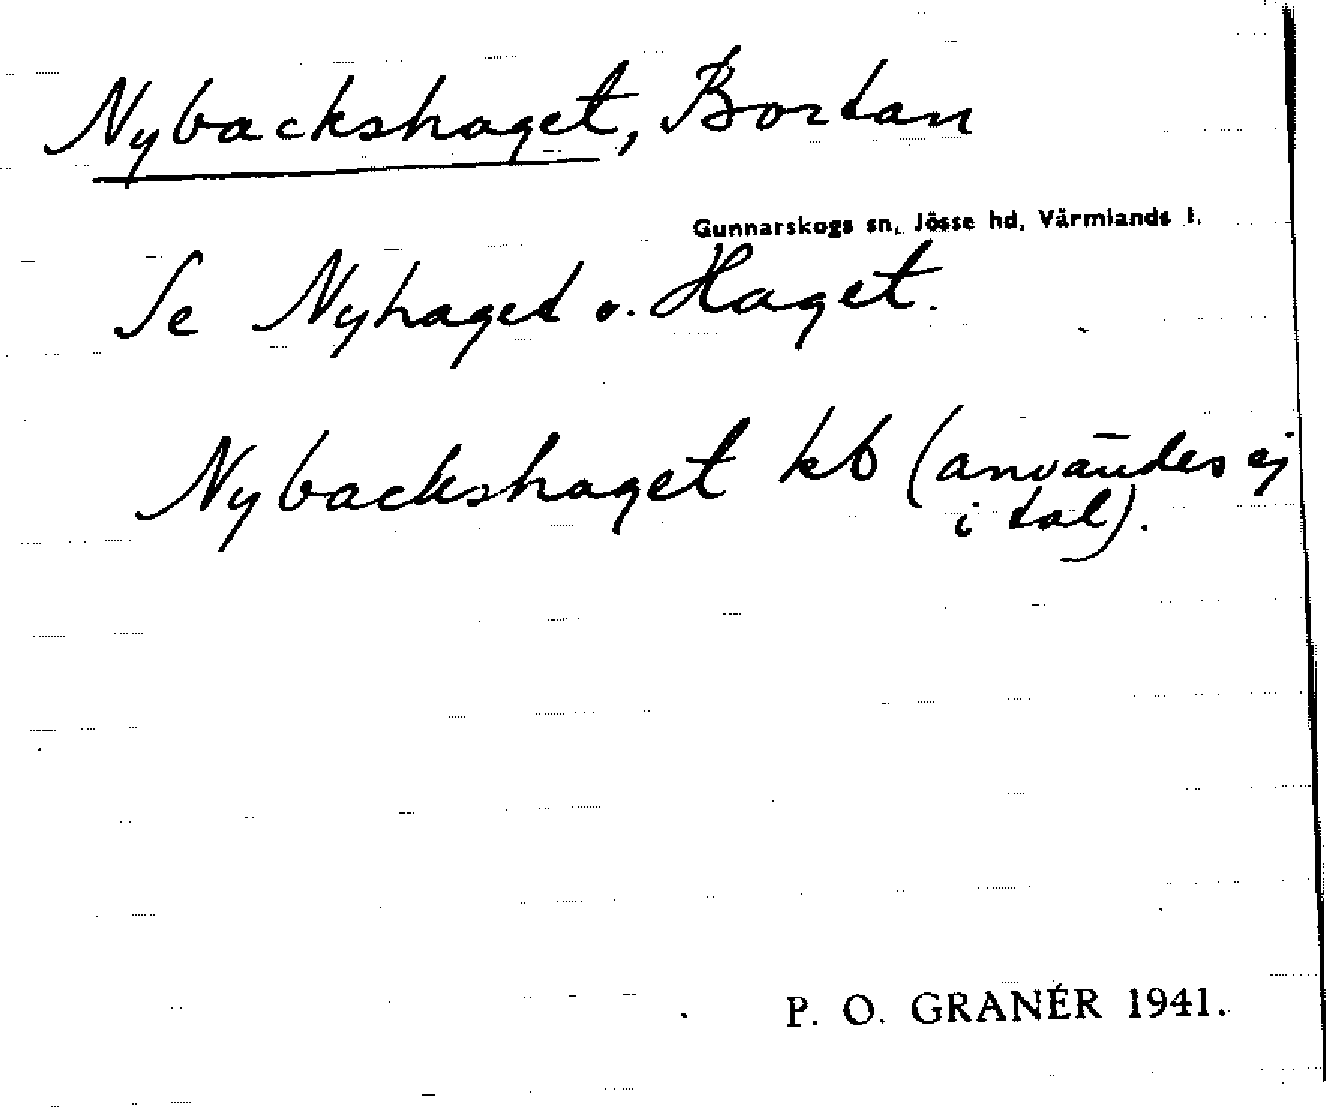 Nybackshaget, Bortan
Gunnarskogs sn, Jösse hd, Värmlands l.
Se Nyhaget o. Haget.
Nybackshaget kb (användes ej
i tal).
P. O. GRANÉR 1941.